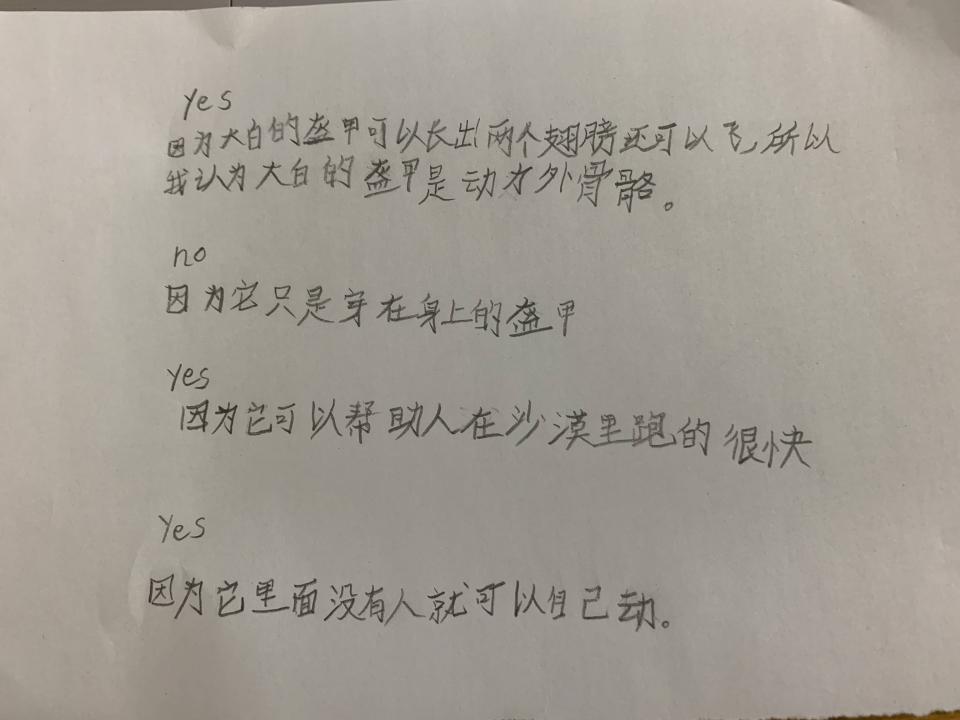 yes
因为大白的盔甲可以长出两个翅膀还可以飞,所以
我认为大白的盔甲是动力外骨骼。
no
因为它只是穿在身上的盔甲
yes
因为它可以帮助人在沙漠里跑的很快
Yes
因为它里面没有人就可以自己动。